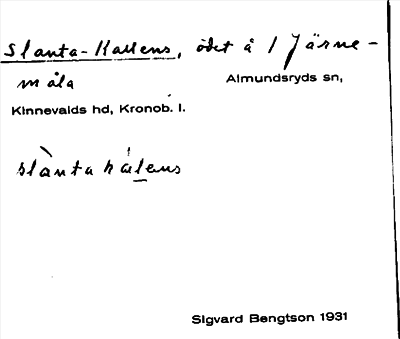 Slanta-Kallens, ödet å 1 Järne-
måla Almundsryds sn,
Kinnevalds hd, Kronob. l.
slànta hálens
Sigvard Bengtson 1931